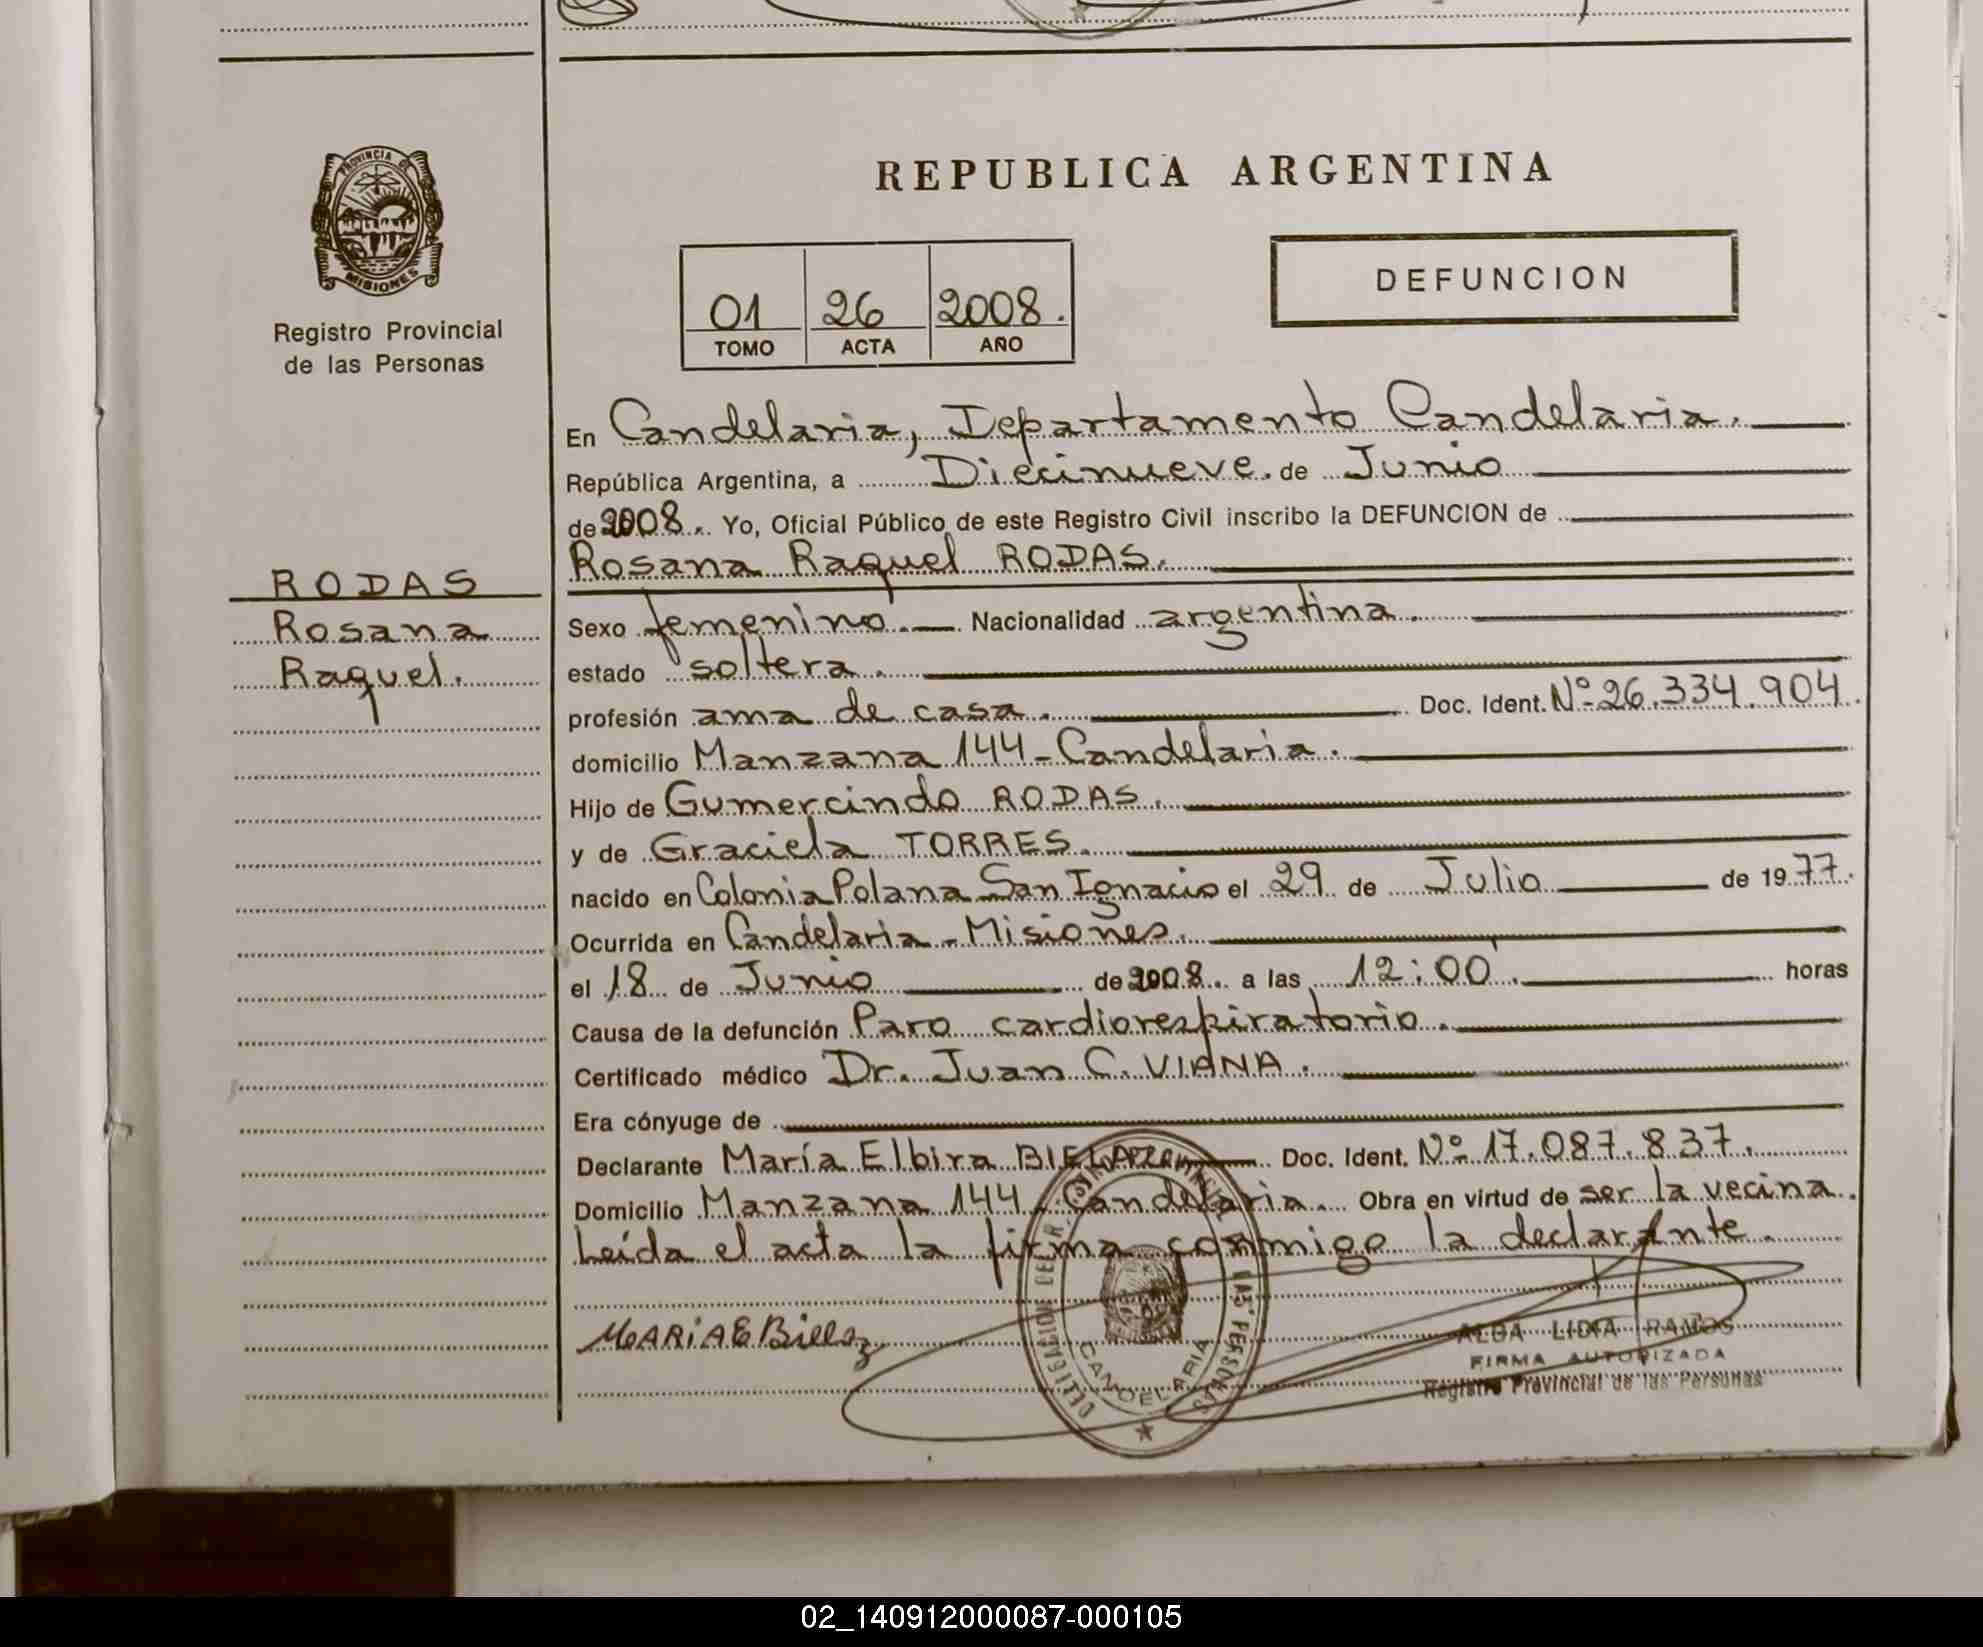 PROVINCIA DE
MISIONES
Registro Provincial
de las Personas
RODAS
Rosana
Raquel.
REPUBLICA ARGENTINA
01 26 2008.
TOMO ACTA AÑO
DEFUNCION
En Candelaria, Departamento Candelaria.
República Argentina, a Diecinueve. de Junio
de 2008. Yo, Oficial Público de este Registro Civil inscribo la DEFUNCION de
Rosana Raquel RODAS.
Sexo femenino. Nacionalidad argentina.
estado soltera.
profesión ama de casa. Doc. Ident. Nº 26.334.904.
domicilio Manzana 144 - Candelaria.
Hijo de Gumercindo RODAS.
y de Graciela TORRES.
nacido en Colonia Polana San Ignacio el 29 de Julio de 1977.
Ocurrida en Candelaria - Misiones.
el 18 de Junio de 2008. a las 12:00 horas
Causa de la defunción Paro cardiorespiratorio.
Certificado médico Dr. Juan C. VIANA.
Era cónyuge de
Declarante María Elbira Doc. Ident. Nº 17.087.837.
Domicilio Manzana 144 - Candelaria. Obra en virtud de ser la vecina.
Leída el acta la firma conmigo la declarante.
MARIA E
DELEGACION DEL R. PROVINCIAL DE LAS PERSONAS
CANDELARIA
ALBA LIDIA RAMOS
FIRMA AUTORIZADA
Registro Provincial de las Personas
02_140912000087-000105